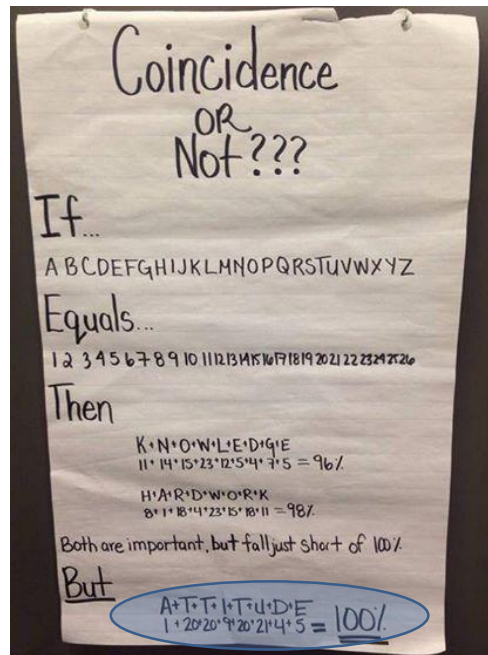 Coincidence
OR
Not???
If...
A B C D E F G H I J K L M N O P Q R S T U V W X Y Z
Equals...
1 2 3 4 5 6 7 8 9 10 11 12 13 14 15 16 17 18 19 20 21 22 23 24 25 26
Then
K+N+O+W+L+E+D+G+E
11+14+15+23+12+5+4+7+5 = 96%
H+A+R+D+W+O+R+K
8+1+18+4+23+15+18+11 = 98%
Both are important, but fall just short of 100%.
But
A+T+T+I+T+U+D+E
1+20+20+9+20+21+4+5 = 100%